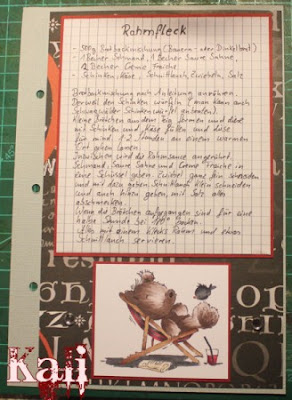 Rahmfleck
- 500g Brotbackmischung (Bauern- oder Dinkelbrot)
- 1 Becher Schmand, 1 Becher Saure Sahne,
1/2 Becher Creme Fraiche
- Schinken, Käse, Schnittlauch, Zwiebeln, Salz
Brotbackmischung nach Anleitung zubereiten.
Derweil den Schinken würfeln (man kann auch
Schwarzwälder Schinken
Kleine Brötchen aus dem Teig formen und diese
mit Schinken und Käse füllen und diese
für mind. 1/2 Stunde an einem warmen
Ort gehen lassen.
Inzwischen wird die Rahmsauce angerührt.
Schmand, Saure Sahne und Creme Fraiche in
eine Schüssel geben. Zwiebel ganz fein schneiden
und mit dazu geben. Schnittlauch klein schneiden
und auch hinein geben, mit Salz alles
abschmecken.
Wenn die Brötchen aufgegangen sind für eine
halbe Stunde bei
Alles mit einem Klecks Rahm und etwas
Schnittlauch servieren.
Kaji